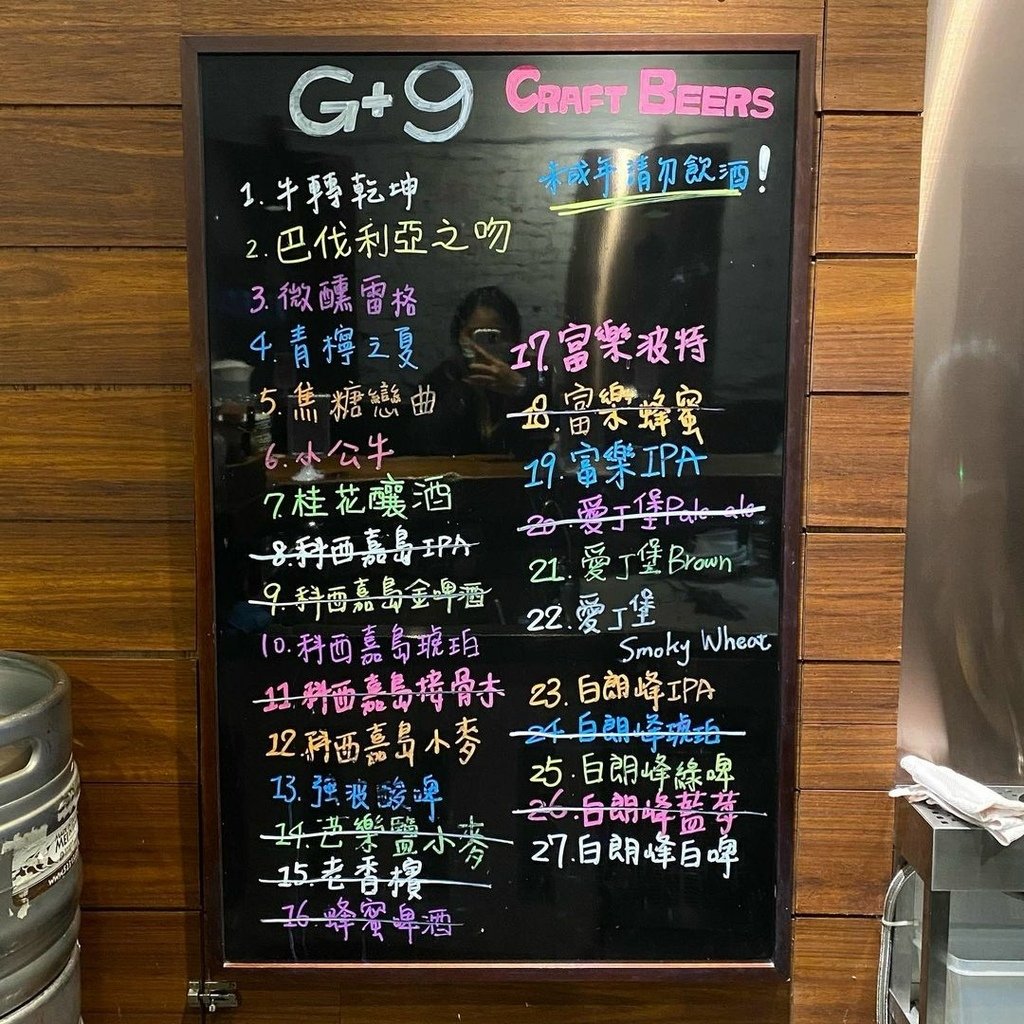 G+9 CRAFT BEERS
未成年請勿飲酒!
1. 牛轉乾坤
2. 巴伐利亞之吻
3. 微醺雷格
4. 青檸之夏
5. 焦糖戀曲
6. 小公牛
7. 桂花釀酒
8. 科西嘉島IPA
9. 科西嘉島金啤酒
10. 科西嘉島琥珀
11. 科西嘉島接骨木
12. 科西嘉島小麥
13. 強波酸啤
14. 芭樂鹽小麥
15. 老香檳
16. 蜂蜜啤酒
17. 富樂波特
18. 富樂蜂蜜
19. 富樂IPA
20 愛丁堡Pale ale
21. 愛丁堡Brown
22. 愛丁堡
Smoky Wheat
23. 白朗峰IPA
24 白朗峰琥珀
25. 白朗峰綠啤
26. 白朗峰藍莓
27. 白朗峰白啤